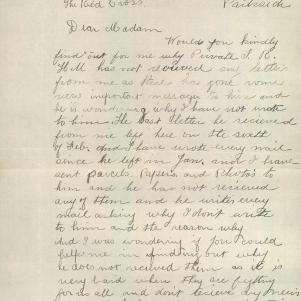 The Red Cross.
Dear Madam
Would you kindly
find out for me why Private J. R.
Hill has not received any letters
from me as there has gone some
very important message to him and
he is wondering why I have not wrote
to him. The last letter he recieved
from me left here on the sixth
of Feb. and I have wrote every mail
since he left in Jan. and I have
sent parcels. Papers. and Photos to
him and he has not recieved
any of them and he writes every
mail asking why I dont wrote
to him and the reason why
And I was wondering if you could
help me in finding out why
he does not recieved them as it is
very hard when they are fighting
for us all and dont recieve any news